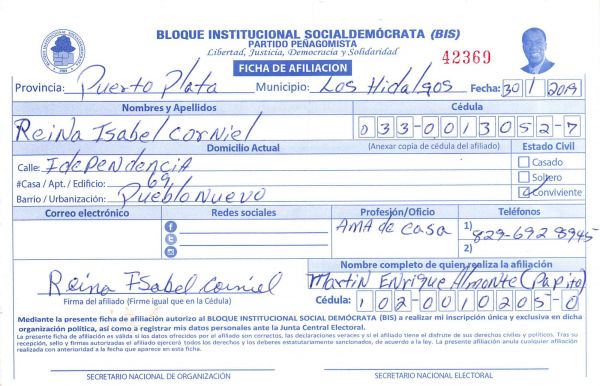 BLOQUE INSTITUCIONAL SOCIALDEMÓCRATA (BIS)
PARTIDO PEÑAGOMISTA
Libertad, Justicia, Democracia y Solidaridad
FICHA DE AFILIACION
42369
Provincia: Puerto Plata Municipio: Los Hidalgos Fecha: 30/1/2019
Nombres y Apellidos Cédula
Reina Isabel Corniel 033-0013052-7
Domicilio Actual (Anexar copia de cédula del afiliado) Estado Civil
Calle: IdePENdENCIA
#Casa / Apt. / Edificio: 69
Barrio / Urbanización: Pueblo Nuevo
Casado
Soltero
Conviviente
Correo electrónico Redes sociales Profesión/Oficio Teléfonos
AMA de casa 1) 829-692 8945
2)
Nombre completo de quien realiza la afiliación
Reina Isabel Corniel Martin Enrique Almonte (Papito)
Firma del afiliado (Firme igual que en la Cédula) Cédula: 102-0010205-0
Mediante la presente ficha de afiliación autorizo al BLOQUE INSTITUCIONAL SOCIAL DEMÓCRATA (BIS) a realizar mi inscripción única y exclusiva en dicha
organización política, así como a registrar mis datos personales ante la Junta Central Electoral.
La presente ficha de afiliación es válida si los datos ofrecidos por el afiliado son correctos, las declaraciones veraces y si el afiliado tiene el disfrute de sus derechos civiles y políticos. Tras su
recepción, sello y firmas autorizadas el afiliado ejercerá todos los derechos y los deberes estatutariamente sancionados, de acuerdo a la ley. La presente afiliación anula cualquier afiliación
realizada con anterioridad a la fecha que aparece en esta ficha.
SECRETARIO NACIONAL DE ORGANIZACIÓN SECRETARIO NACIONAL ELECTORAL